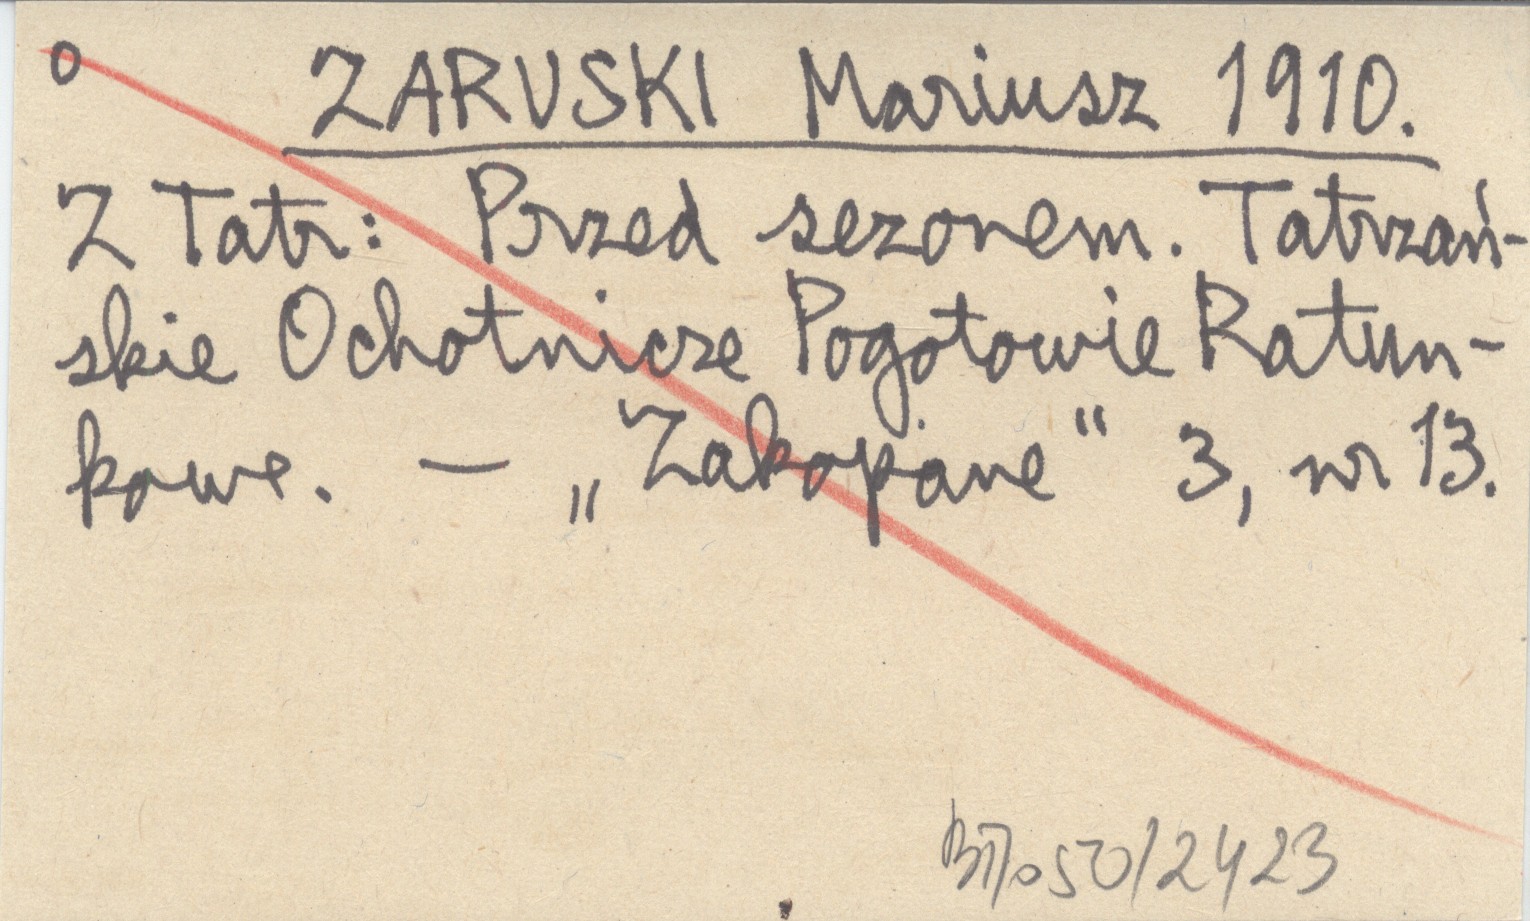 o ZARUSKI Mariusz 1910.
Z Tatr: Przed sezonem. Tatrzań-
skie Ochotnicze Pogotowie Ratun-
kowe. — „Zakopane" 3, nr 13.
50/2423